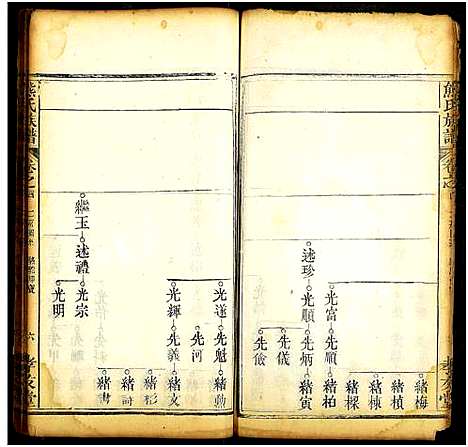 熊氏族譜
卷之四
緒梅
緒楨
緒棟
緒樑
緒柏
光富
先順
述珍
光順
先炳
緒寅
先儀
先儉
熊氏族譜
卷之四
六
孝友堂
光遂
先魁
緒勲
先河
光輝
先義
緒文
緒彬
緒詩
緒書
繼玉
述禮
光宗
光明